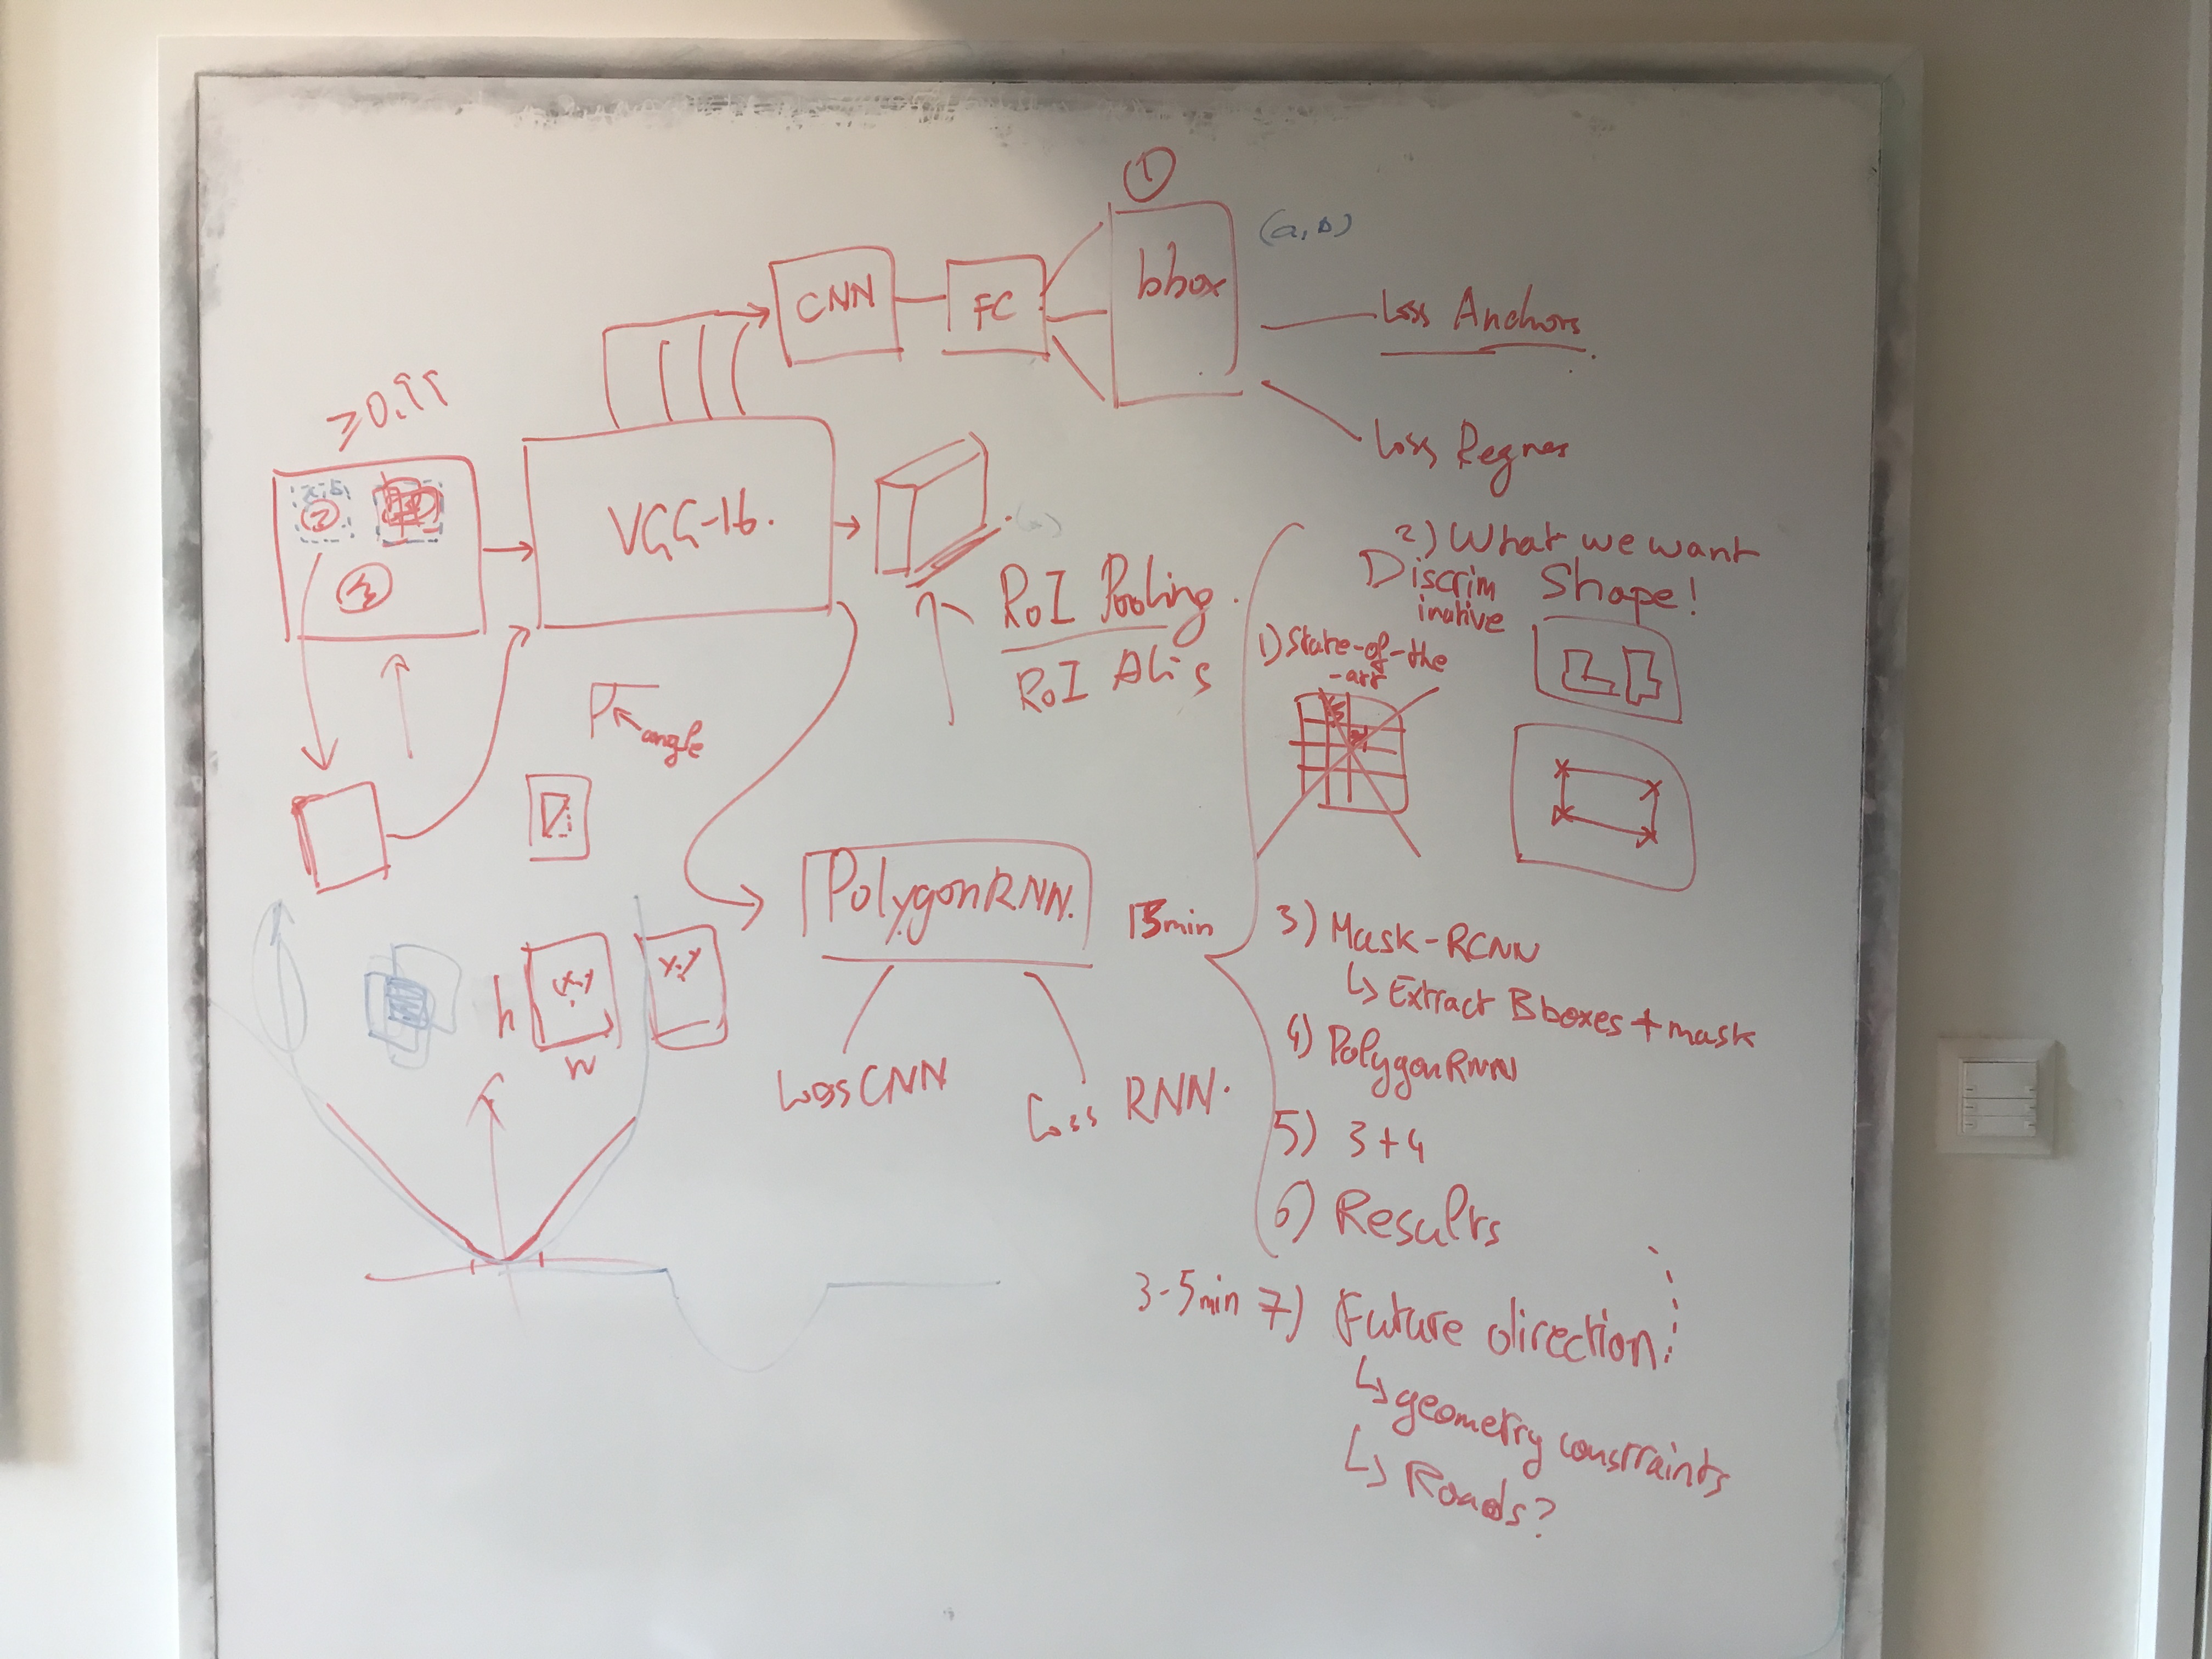 1
bbox
(a, b)
CNN
FC
Loss Anchors
Loss Regres
≥0.99
2
3
VGG-16.
RoI Pooling
RoI Alig
angle
PolygonRNN.
Loss CNN
Loss RNN.
h
(x,y
w
x,y
15min
2) What we want
Discrim
inative
Shape!
1) State-of-the
-art
3) Mask-RCNN
↳ Extract Bboxes + mask
4) PolygonRNN
5) 3+4
6) Results
3-5min 7) Future direction:
↳ geometry constraints
↳ Roads?